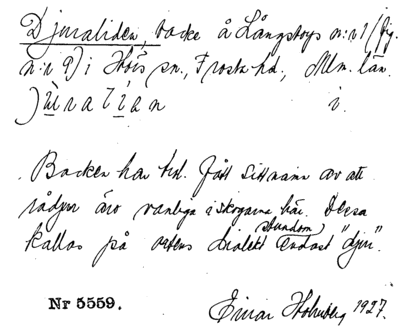 Djuraliden, backe å Långstorps n:r 1 (fig.
n:r 9) i Höörs sn., Frosta hd., Mlm. län.
) ù r a l ì a n i.
Backen har trol. fått sitt namn av att
rådjur äro vanliga i skogarna här. Dessa
kallas på ortens dialekt stundom endast "djur".
Nr 5559. Einar Holmberg 1927.